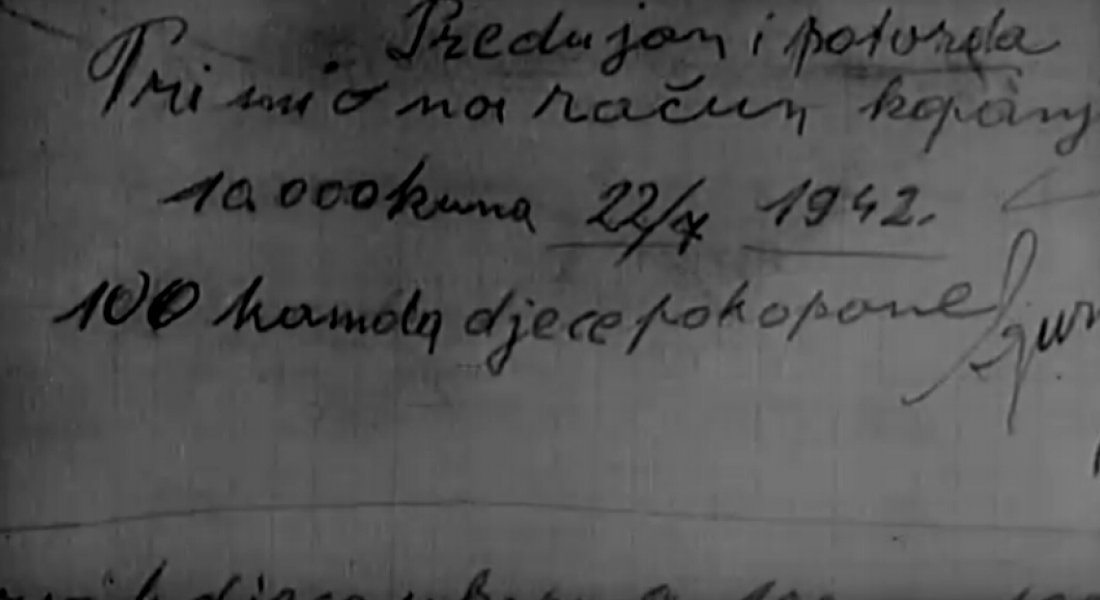 Predujam i potvrda
Primio na račun kopanj
10 000 kuna 22/7 1942.
100 komota djece pokopane